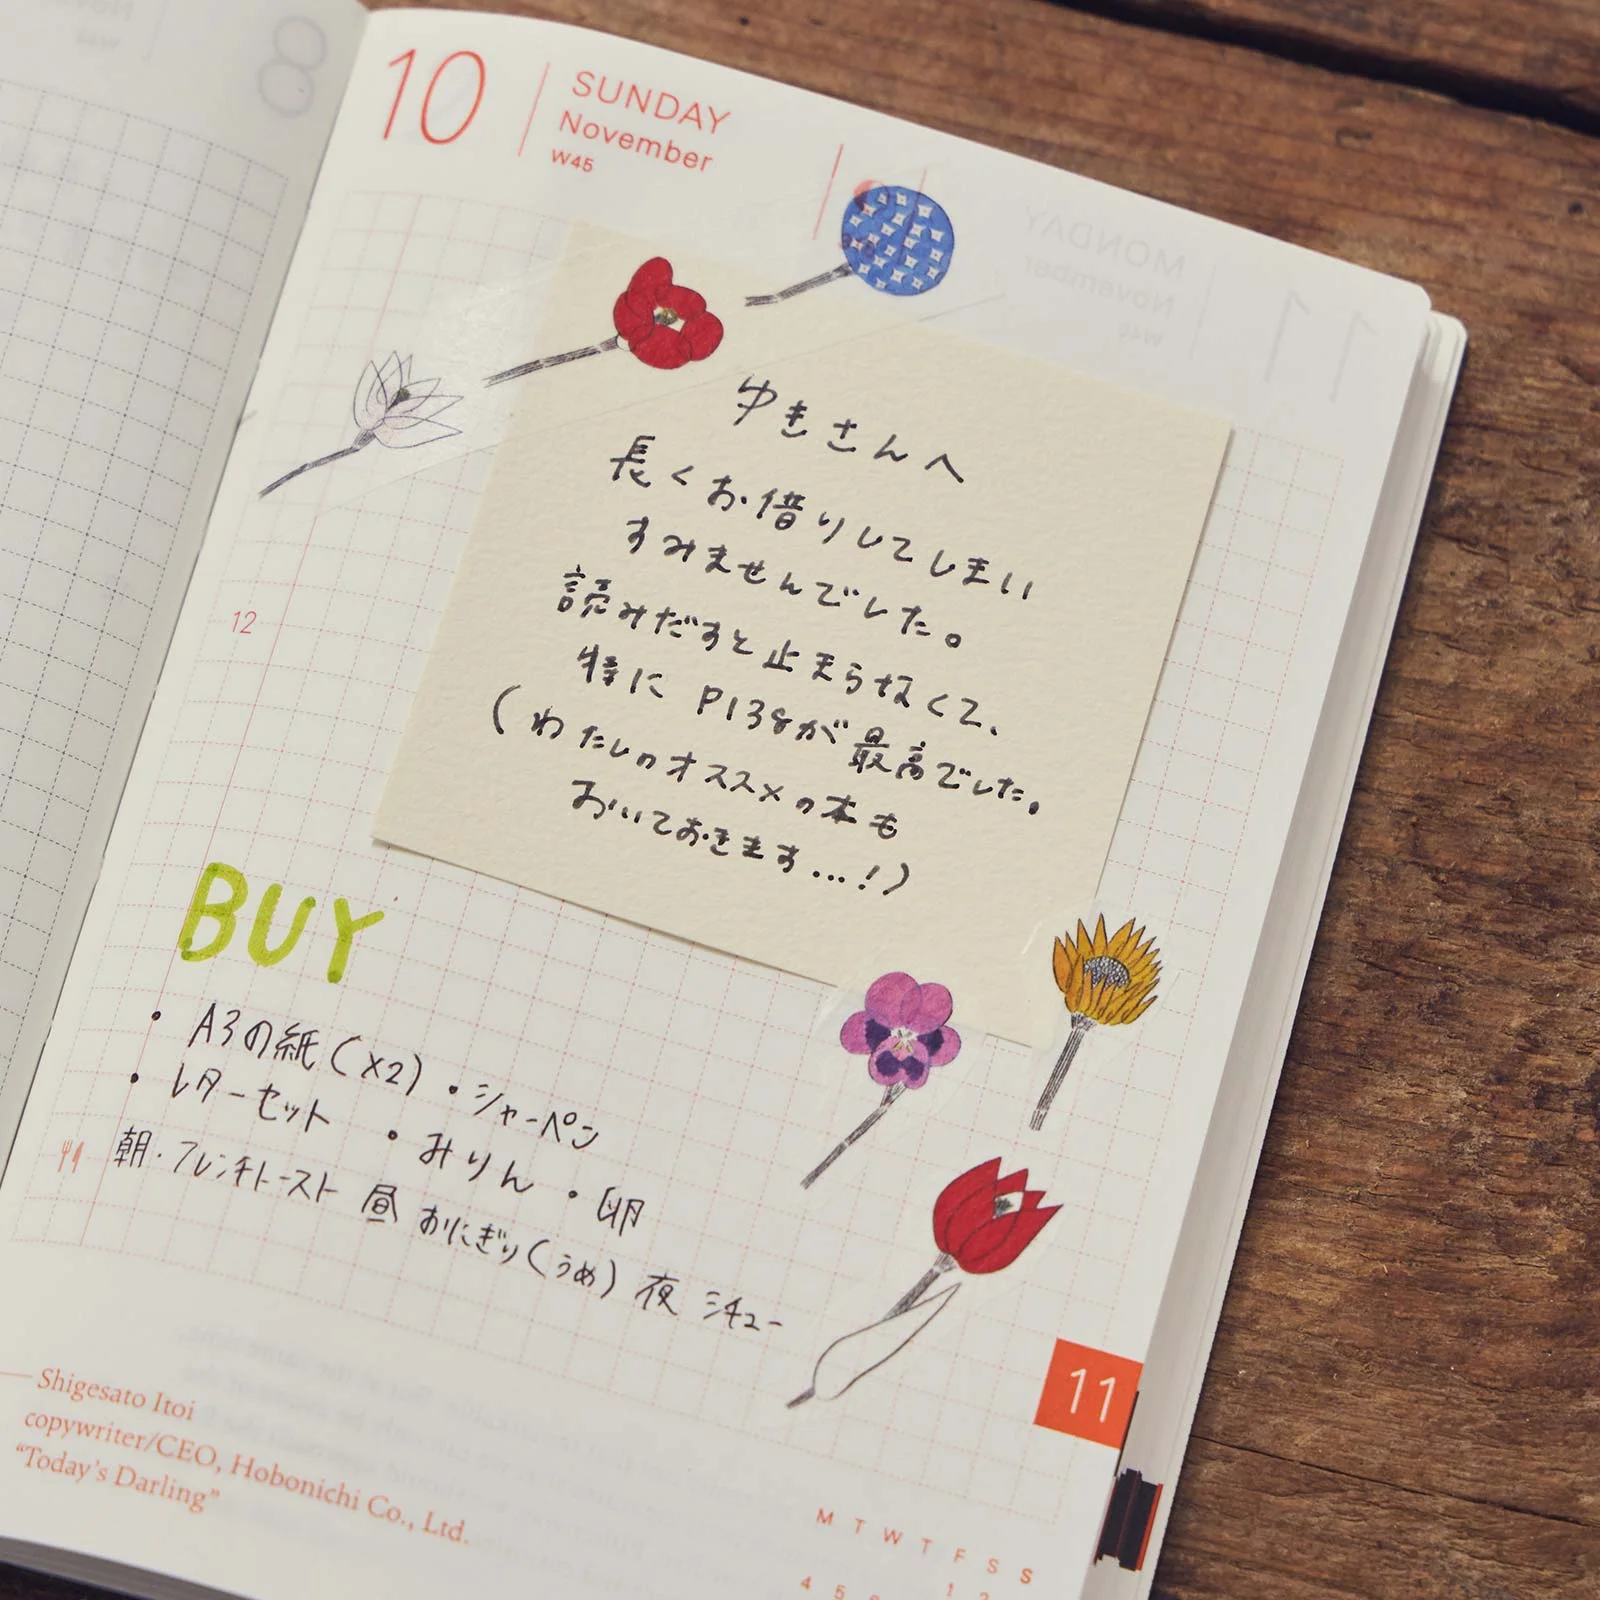 10
SUNDAY
November
W45
ゆきさんへ
長くお借りしてしまい
すみませんでした。
読みだすと止まらなくて、
特に P138が最高でした。
(わたしのオススメの本も
おいておきます...!)
12
BUY
・A3の紙(×2) ・シャーペン
・レターセット ・みりん ・卵
朝・フレンチトースト 昼 おにぎり(うめ) 夜 シチュー
11
Shigesato Itoi
copywriter/CEO, Hobonichi Co., Ltd.
“Today’s Darling”
M T W T F S S
1 2
4 5 6